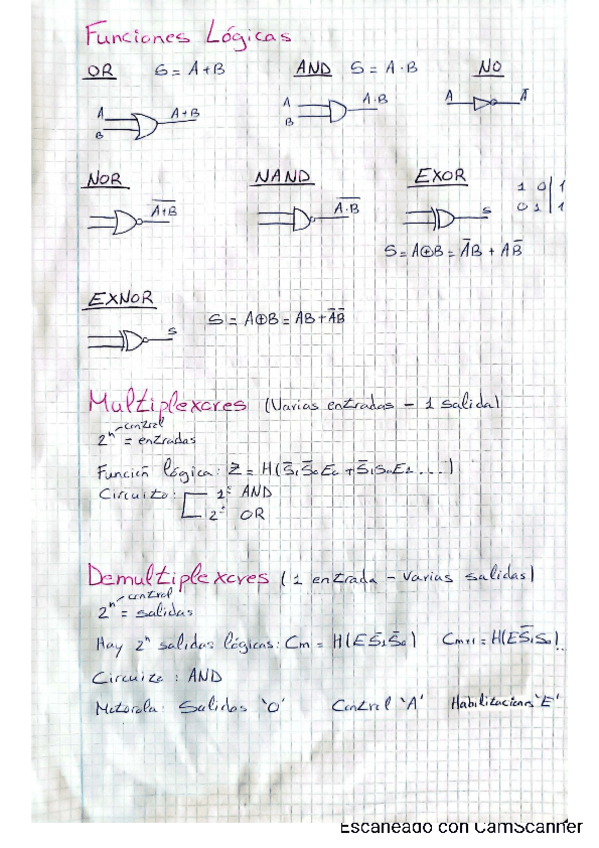 Funciones Lógicas
OR S = A+B AND S = A·B NO
A B A+B A B A·B A Ā
NOR NAND EXOR
1 0 | 1
0 1 | 1
A̅+̅B̅ A̅·̅B̅ S
S = A⊕B = ĀB + AB̅
EXNOR
S S = A⊕B = AB + ĀB̅
Multiplexores (Varias entradas - 1 salida)
2ⁿ -control = entradas
Función lógica: Z = H(S̅₁S̅₀E₀ + S̅₁S₀E₁ ...)
Circuito: 1º AND
2º OR
Demultiplexores (1 entrada - Varias salidas)
2ⁿ -control = salidas
Hay 2ⁿ salidas lógicas: Cm = H(E S̅₁S̅₀) Cm+1 = H(E S̅₁S₀)..
Circuito: AND
Motorola: Salidas 'O' Control 'A' Habilitaciones 'E'
Escaneado con CamScanner